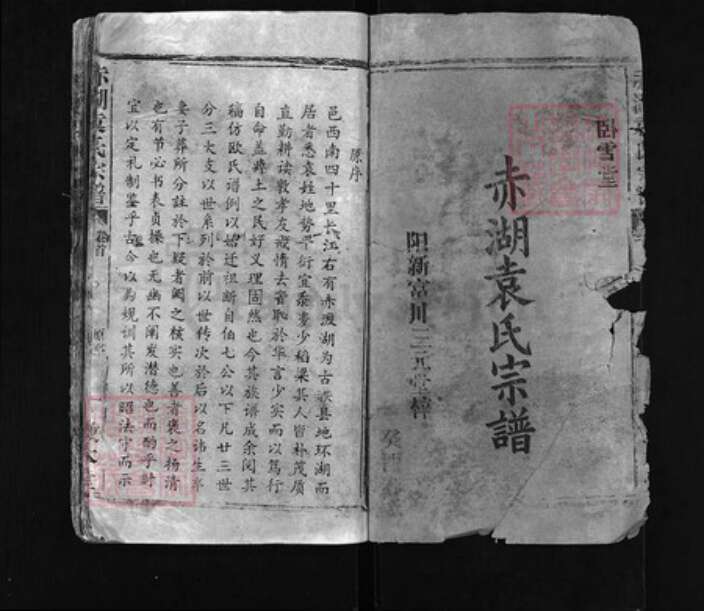 卧雪堂
赤湖袁氏宗譜
阳新富川三元堂梓
原序
邑西南四十里长江右有赤湖为古县地环湖而
居者悉袁姓地势平衍宜黍麦少稻粱其人皆朴茂质
直勤耕读敦孝友疏情去耻於华言少实而以笃行
自命盖瘠土之民好义理固然也今其族谱成余阅其
稿仿欧氏谱例以始迁祖断自伯七公以下凡廿三世
分三大支以世系列於前以世传次於后以名诸生
妻子葬所分註於下疑者阙之核实也善者褒之扬清
也有节必书表贞操也无幽不阐发潜德也而酌乎时
宜以定礼制鉴乎古今以为规训其所以昭法守而示
赤湖袁氏宗譜
卷首
原序